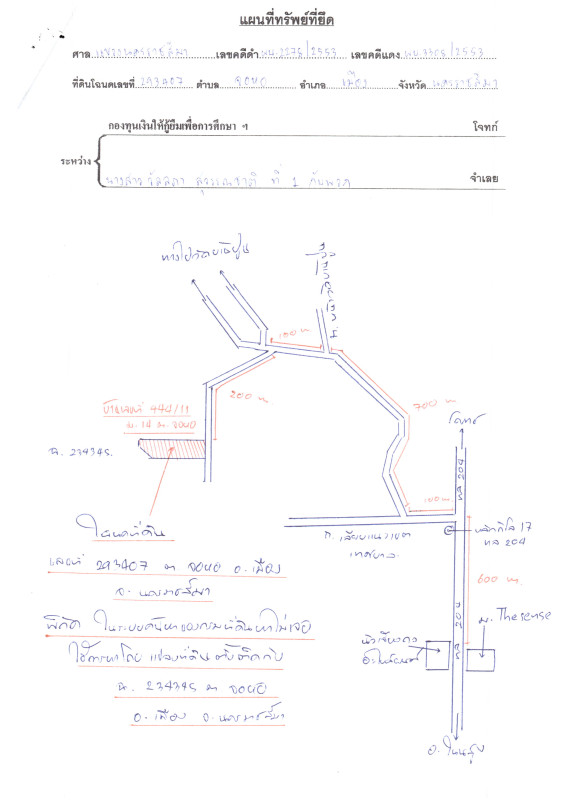 แผนที่ทรัพย์ที่ยึด
ศาล แขวงนครราชสีมา เลขคดีดำ ผบ.2275/2553 เลขคดีแดง ผบ.3308/2553
ที่ดินโฉนดเลขที่ 293407 ตำบล จอหอ อำเภอ เมือง จังหวัด นครราชสีมา
กองทุนเงินให้กู้ยืมเพื่อการศึกษา ฯ โจทก์
ระหว่าง
นางสาว สุวรรณชาติ ที่ 1 กับพวก จำเลย
100 m
200 m
700 m
บ้านเลขที่ 444/11
ม.14 ต.จอหอ
ฉ. 234345.
ทล 204
100 m
หลักกิโล 17
ทล 204
ถ. เลี่ยงแนวเขต
เทศบาล
600 m.
ทล 204
ม. The sense
โฉนดที่ดิน
เลขที่ 293407 ต จอหอ อ. เมือง
จ. นครราชสีมา
พิกัด ในระบบค้นหาของกรมที่ดินหาไม่เจอ
ใช้การหาโดย แปลงที่ดิน ตั้งติดกับ
ฉ. 234345 ต จอหอ
อ. เมือง จ. นครราชสีมา
อ. โนนสูง